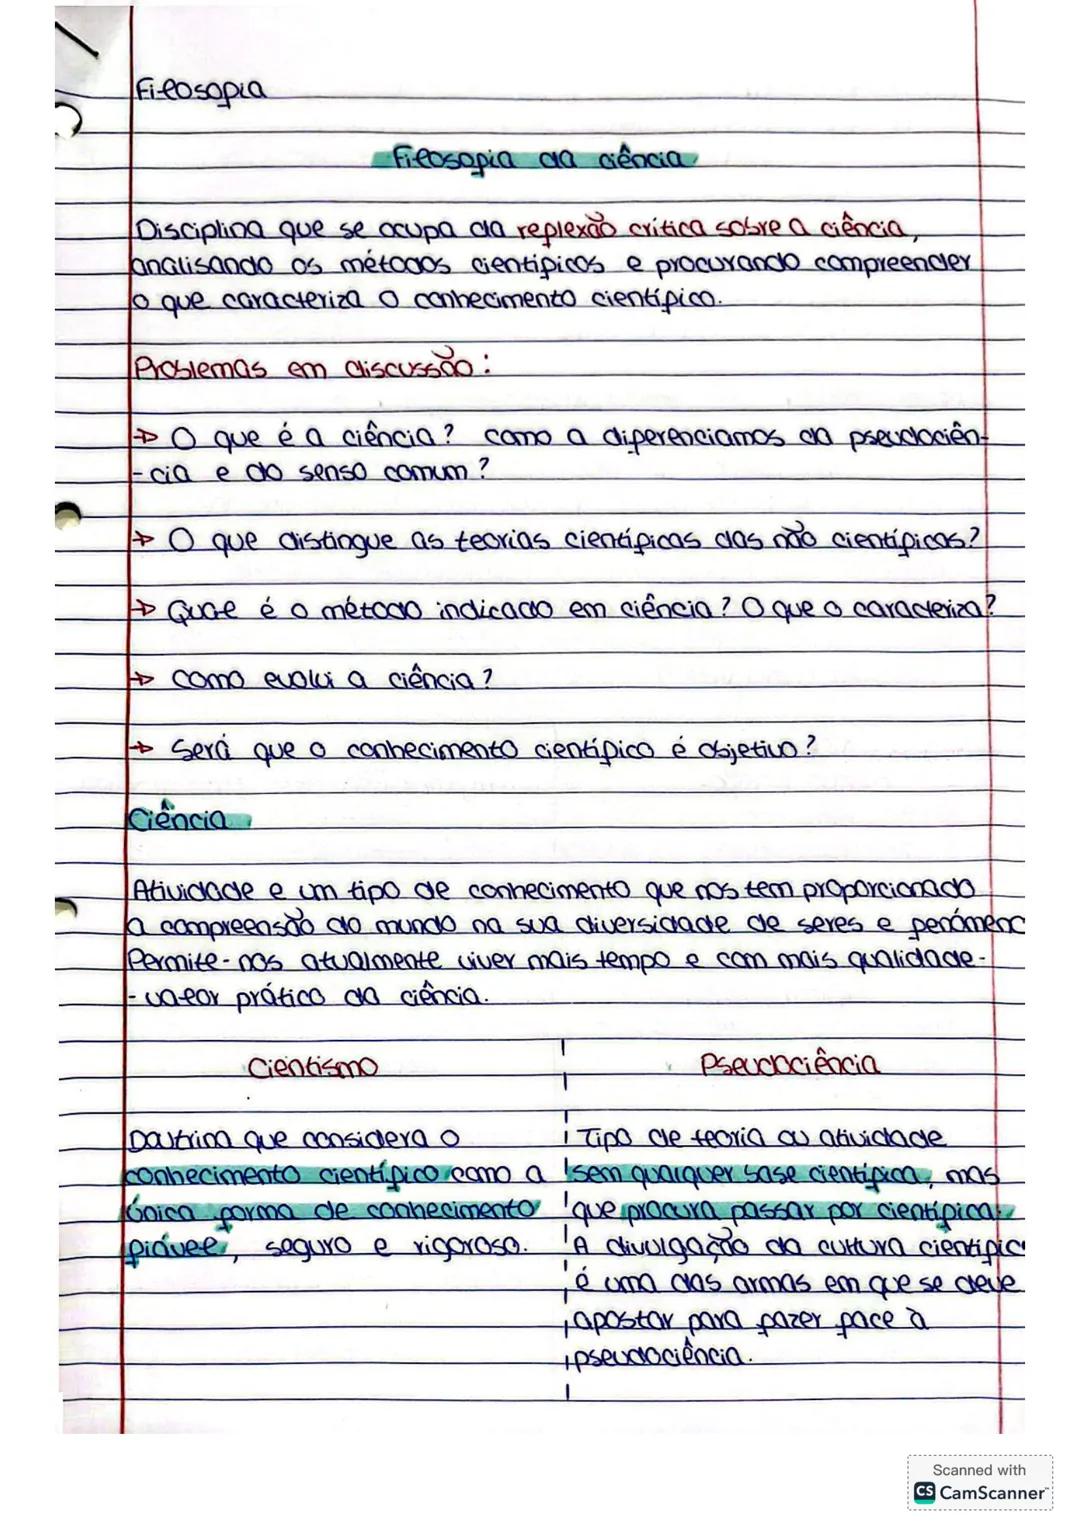 Filosofia
Filosofia da ciência
Disciplina que se ocupa da reflexão crítica sobre a ciência,
analisando os métodos científicos e procurando compreender
o que caracteriza o conhecimento científico.
Problemas em discussão:
→ O que é a ciência? Como a diferenciamos da pseudociên-
-cia e do senso comum?
→ O que distingue as teorias científicas das não científicas?
→ Qual é o método indicado em ciência? O que o caracteriza?
→ Como evolui a ciência?
→ Será que o conhecimento científico é objetivo?
Ciência
Atividade e um tipo de conhecimento que nos tem proporcionado
a compreensão do mundo na sua diversidade de seres e fenómeno
Permite-nos atualmente viver mais tempo e com mais qualidade-
- valor prático da ciência.
Cientismo
Doutrina que considera o
conhecimento científico como a
única forma de conhecimento
fiável, seguro e rigoroso.
Pseudociência
Tipo de teoria ou atividade
sem qualquer base científica, mas
que procura passar por científica.
A divulgação da cultura científic
é uma das armas em que se deve
apostar para fazer face à
pseudociência.
Scanned with
CS CamScanner